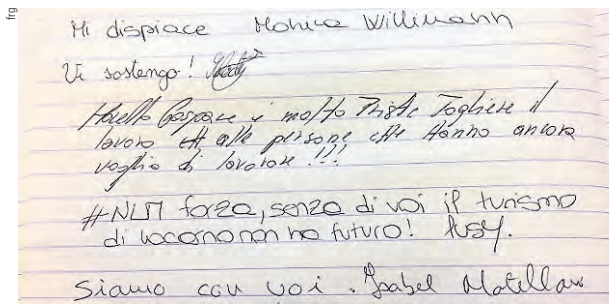 frg
Mi dispiace Monica Willimann
Vi sostengo!
è molto triste togliere il
lavoro alle persone che hanno ancora
voglia di lavorare !!!
#NLM forza, senza di voi il turismo
di Locarno non ha futuro! Susy.
Siamo con voi. Isabel